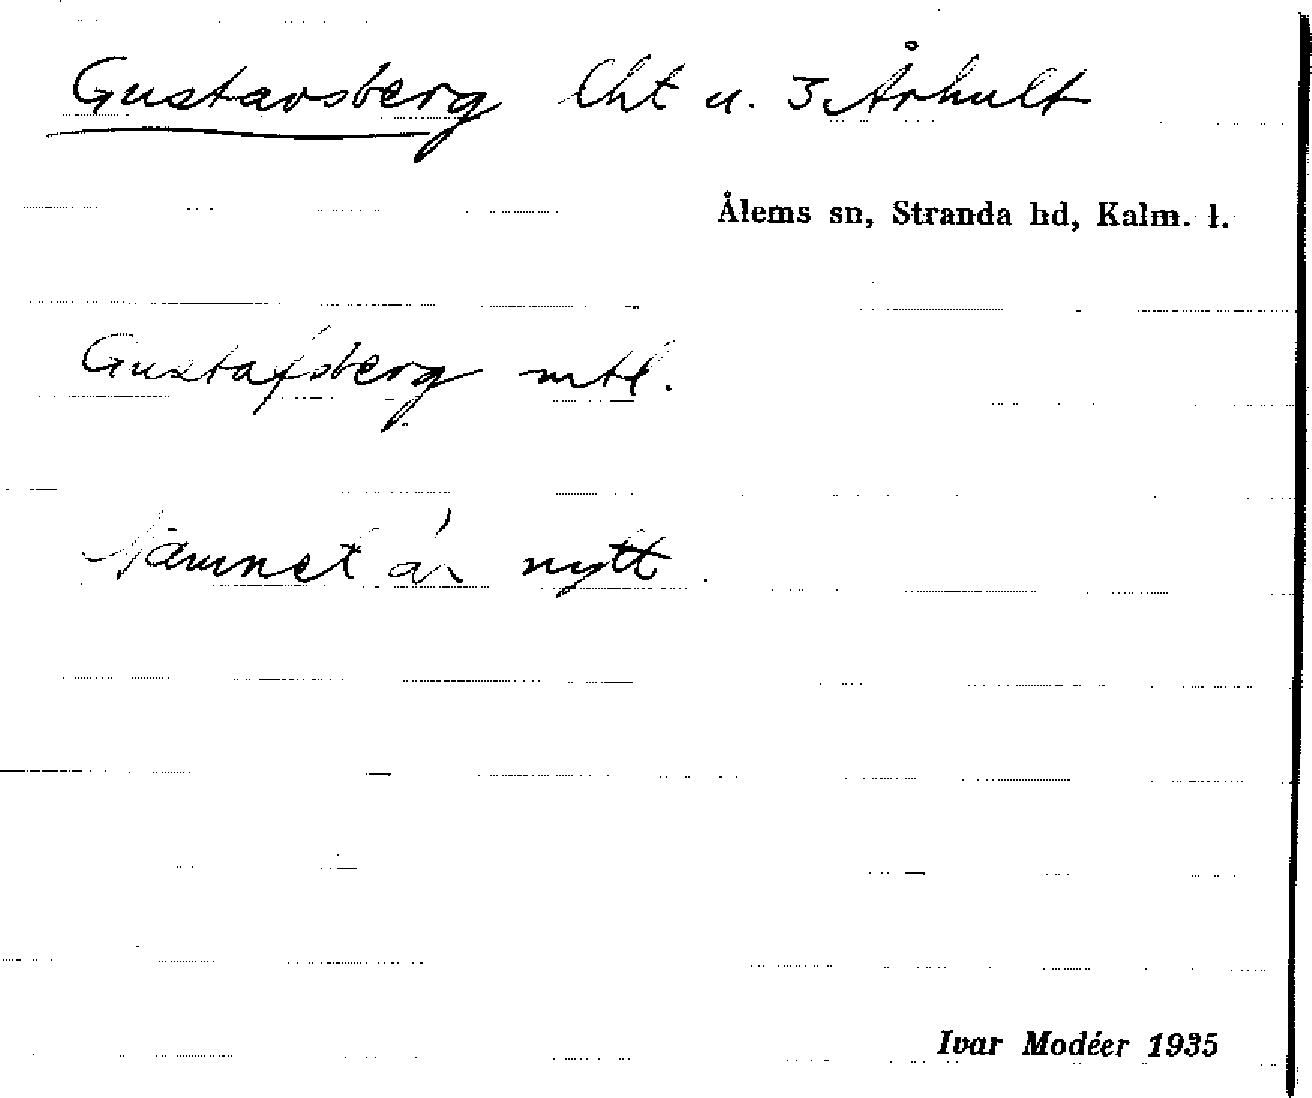 Gustavsberg lht u. 3 Århult
Ålems sn, Stranda hd, Kalm. l.
Gustafsberg mtl.
Namnet är nytt.
Ivar Modéer 1935